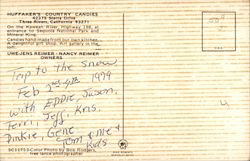 HUFFAKER'S COUNTRY CANDIES
42375 Sierra Drive
Three Rivers, California 93271
On the Kaweah River, Highway 198, at
entrance to Sequoia National Park and
Mineral King.
Candies hand made from our own kitchen.
A delightful gift shop. Art gallery in the
UWE-JENS REIMER - NANCY REIMER
OWNERS
Trip to the snow
Feb 2nd 4th 1979
with EDDIE, Susan,
Terri, Jeff, Kris,
Dinkie, Gene
Tom & me &
Kids
Color Photo by Bob Rodgers
free lance photographer